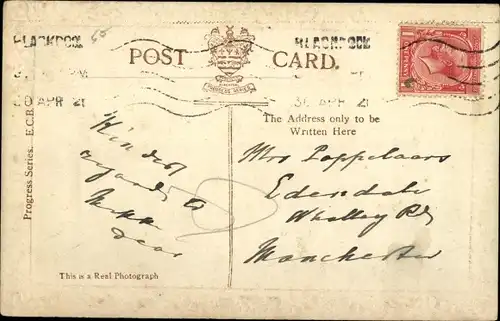 BLACKPOOL
BLACKPOOL
POST CARD.
30 APR 21
30 APR 21
PROGRESS SERIES
Progress Series. E.C.B.
The Address only to be
Written Here
Kindest
regards to
dear
Mrs Poppelaars
Edendale
Whalley Rd
Manchester
This is a Real Photograph